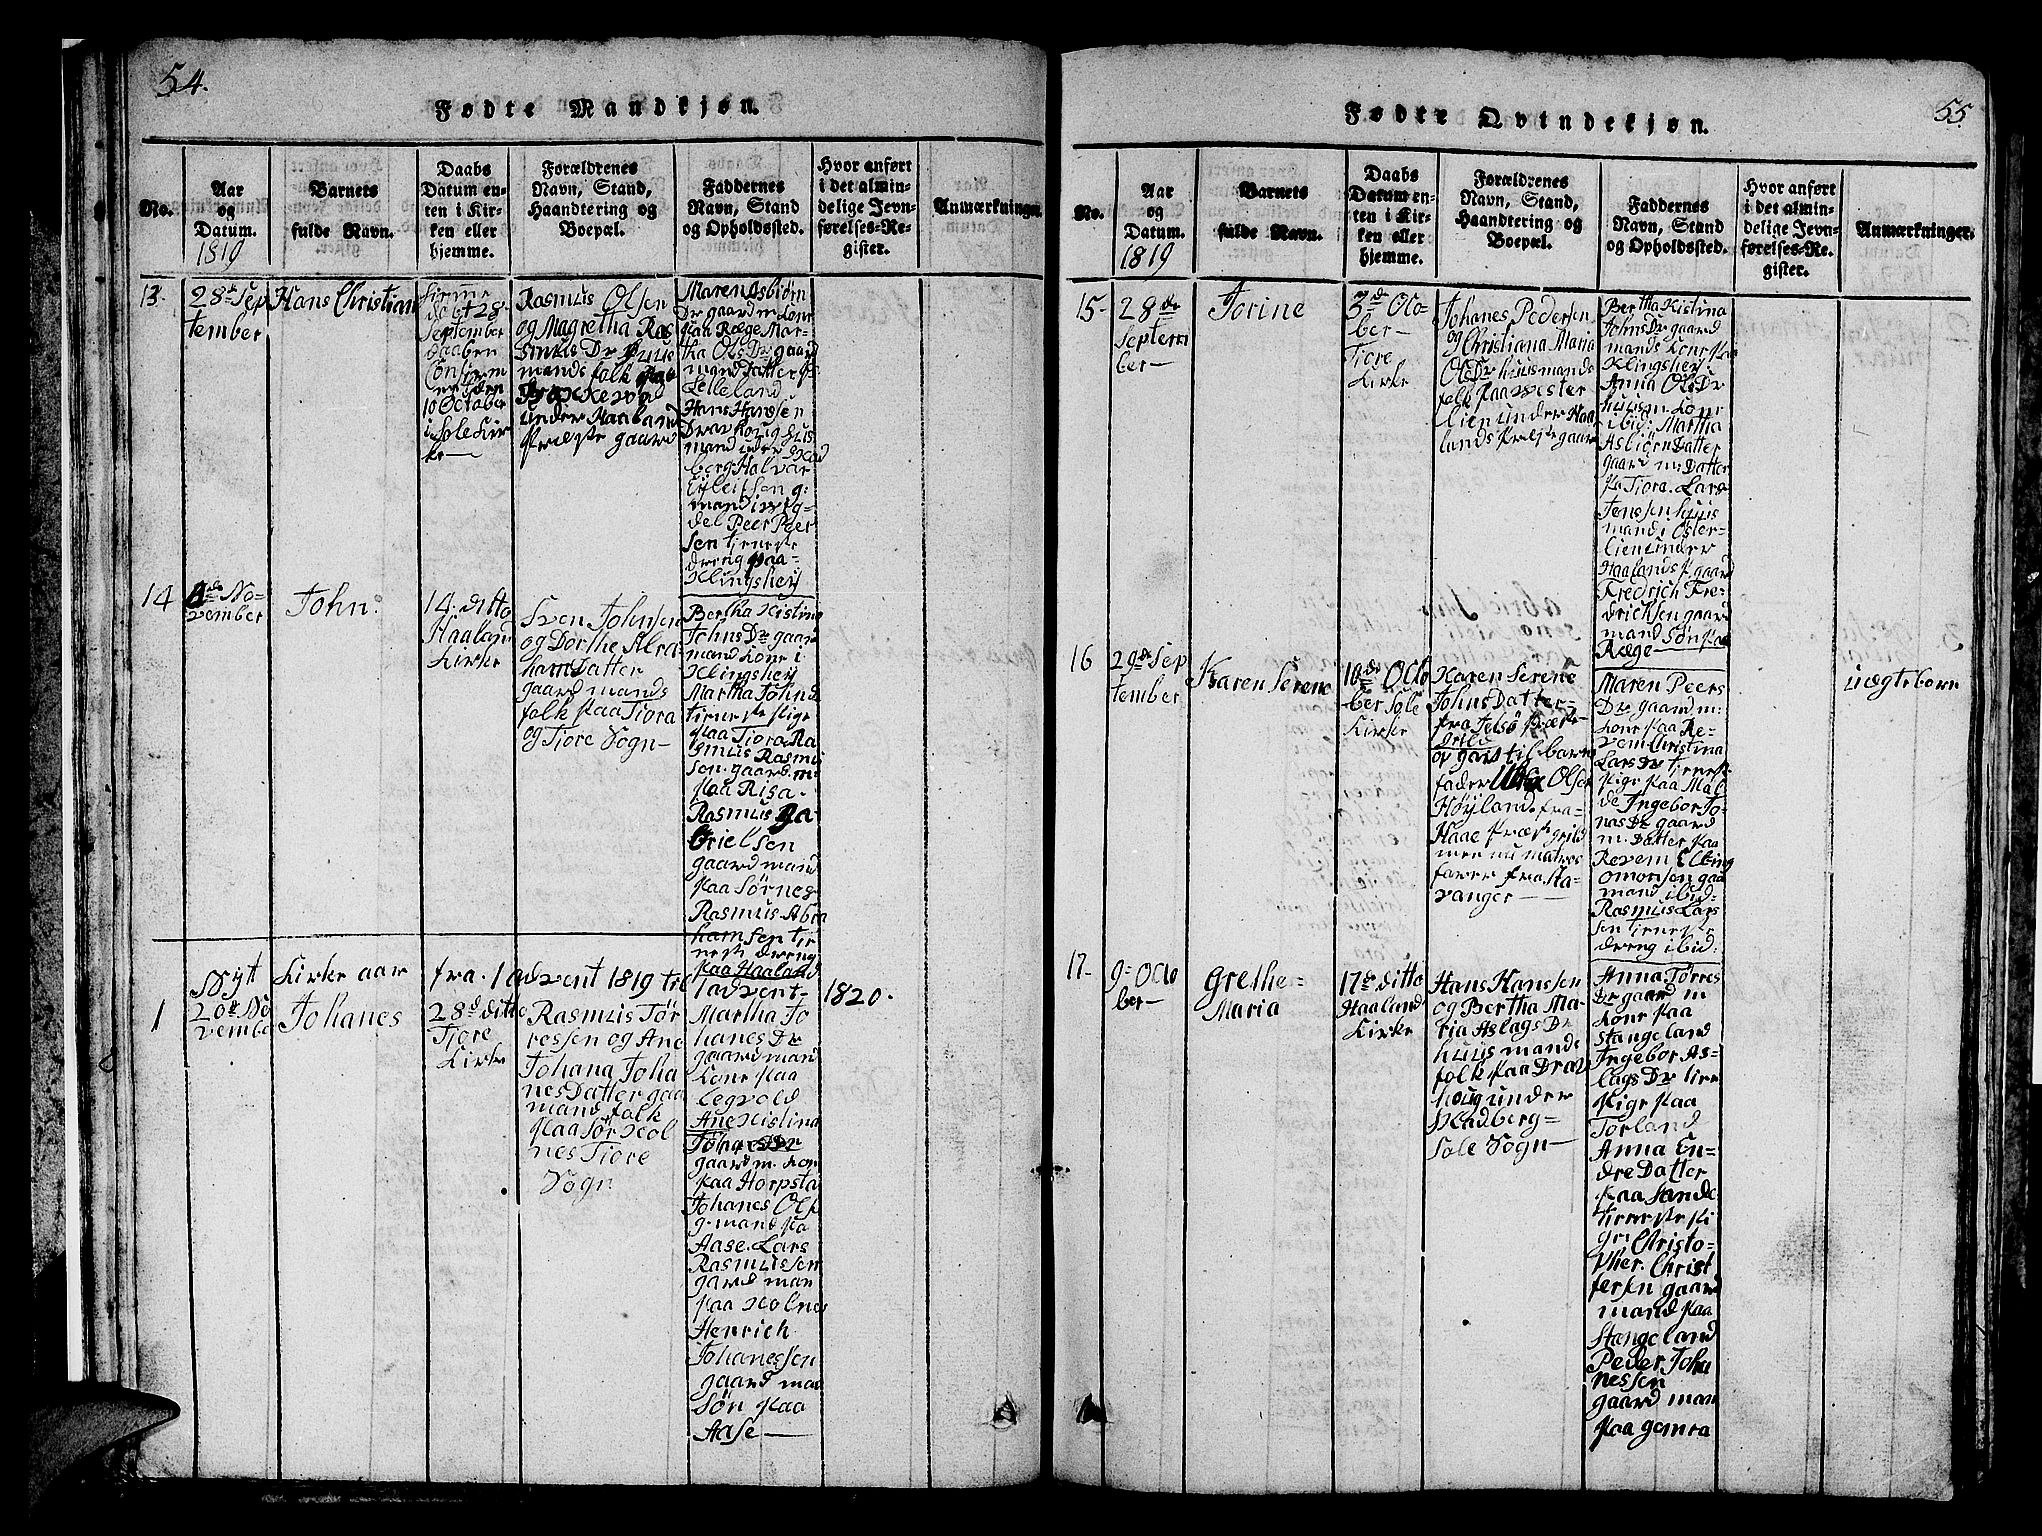 54.
Fødte Mandkjøn.
No.
Aar
og
Datum.
1819
Barnets
fulde Navn.
Daabs
Datum en-
ten i Kir-
ken eller
hjemme.
Forældrenes
Navn, Stand,
Haandtering og
Boepæl.
Faddernes
Navn, Stand
og Opholdssted.
Hvor anført
i det almin-
delige Jevn-
førelses-Re-
gister.
Anmærkninger.
13.
28de Sep
tember
Hans Christian
hiemme
døbt 28.
September
Daaben
Confirm
10 October
i Sole Kir
ke
Rasmus Olsen
og Magretha Ras
smus Dr huus
mands folk paa
under Haaland
Præste gaard
Maren Asbiørn
Dr gaard m. Kone
paa Ræge Mar-
tha Ols Dr gaard
mand Datter
Lelleland
Hans Hansen
Dravhoug huus
mand under Kad
berg Halvar
Eyleifsen g:
mand i
del Peer Peer
sen tieneste
dreng paa
Klingshey
14
8de No-
vember
John.
14. ditto
Haaland
Kirke
Sven Johnsen
og Dorthe Abra
hams Datter
gaard mands
folk paa Tiora
og Tiore Sogn
Bertha Kistina
Johns Dr gaar
mand Kone i
Klingshey
Martha Johns
tieneste Pige
paa Tiora Ra
smus Rasmus
sen. gaard m.
paa Risa.
Rasmus Ga-
briel sen
gaard mand
paa Sørnes
Rasmus Abra
hamsen tie
neste dreng
paa Haaland
Nyt Kirke aar fra. 1 advent 1819 til 1 advent 1820.
1
20de No
vember
Johanes
28de ditto
Tiore
Kirke
Rasmus Tør
ressen og Ane
Johana Joha
nes Datter gaa
mand folk
paa Sør Kol
nes Tiore
Sogn
Martha Jo
hanes Dr
gaard man
Kone paa
Legvold
Ane Kistina
Johanes Dr
gaard m. Kon
paa Horpsta
Johanes Ols
g. mand pa
Aase. Lars
Rasmussen
gard man
paa Kolnes
Henrich
Johanessen
gaard man
Søn paa
Aase
55
Fødte Qvindekjøn.
No.
Aar
og
Datum.
1819
Barnets
fulde Navn.
Daabs
Datum en-
ten i Kir-
ken eller
hjemme.
Forældrenes
Navn, Stand,
Haandtering og
Boepæl.
Faddernes
Navn, Stand
og Opholdssted.
Hvor anført
i det almin-
delige Jevn-
førelses-Re-
gister.
Anmærkninger.
15
28de
Septem
ber
Torine
3de Octo
ber
Tiore
Kirke
Johanes Pedersen
og Christiana Maria
Ols Dr huusmands
folk paa Vester
Lien under Haa
lands Præstegaar
Bertha Kistina
Johns Dr gaard
mands Kone paa
Klingshey
Anna Ols Dr
huusm. Kone
ibid: Martha
Asbiørn Datter
gaard m: Datter
paa Tiora. Lars
Jenssen huus
mand i Øster
Lien under
Haalands p. gaard
Fredrich Fre-
drichsen gaard
mand Søn paa
Ræge
16
29de Sep
tember
Karen Serene
10de Octo
ber Sole
Kirke
Karen Serene
Johns Datter
fra Jelsø Præste
Gield
og gard til barne
fader Olsen
Høyland. fra
Haae Præstegield
men nu matros
farer fra Sta-
vanger
Maren Peers
Dr gaard m:
Kone paa Re-
vem Christina
Lars Dr tieneste
Pige paa Mal
de Ingebor Jo-
nas Dr gaard
m. Datter paa
Revem Elling
Omonsen gaa
mand ibid
Rasmus Lars
sen tieneste
dreng ibid.
uægteborn
17
9. Octo
ber
Grethe
Maria
17de ditto
Haaland
Kirke
Hans Hanssen
og Bertha Ma-
ria Aslags Dr
huus mands
folk paa Drav
houg under
Kadberg
Sole Sogn
Anna Tørres
Dr gaard m
Kone paa
Stangeland
Ingebor As-
lags Dr tiene
Pige paa
Torland
Anna En-
dre Datter
paa Sande
tieneste Pi
ge Christo-
pher. Christ
fersen gaard
mand paa
Stangeland
Peder Joha
nessen
gaard man
paa Gomra